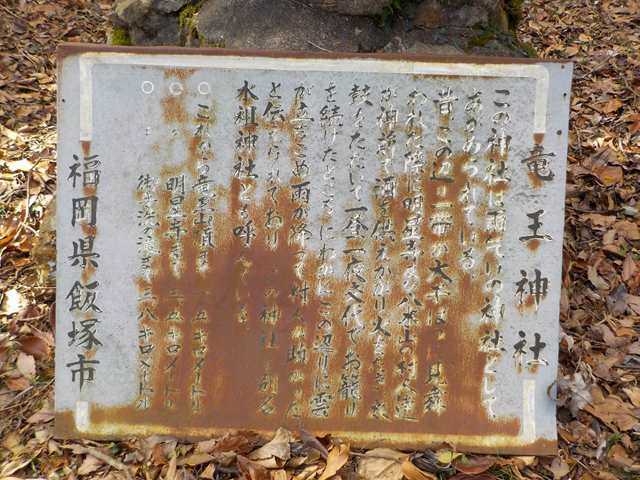 竜王神社
この神社は雨ごいの神社として
あがめられている。
昔この辺一帯が大干ばつに見舞
われた際に明星寺の八木山の村人達
が神前で酒を供えかがり火をたき太
鼓をたたいて一昼一夜交代でお籠り
を続けたところにわかにこの辺りに雲
が立ちこめ雨が降って村人が助かった
と伝えられており この神社を別名
水祖神社とも呼んでいる。
○ これから竜王山頂まで 〇.五キロメートル
○ 〃 明星寺まで 二.五キロメートル
○ 〃 まで 三.八キロメートル
福岡県飯塚市